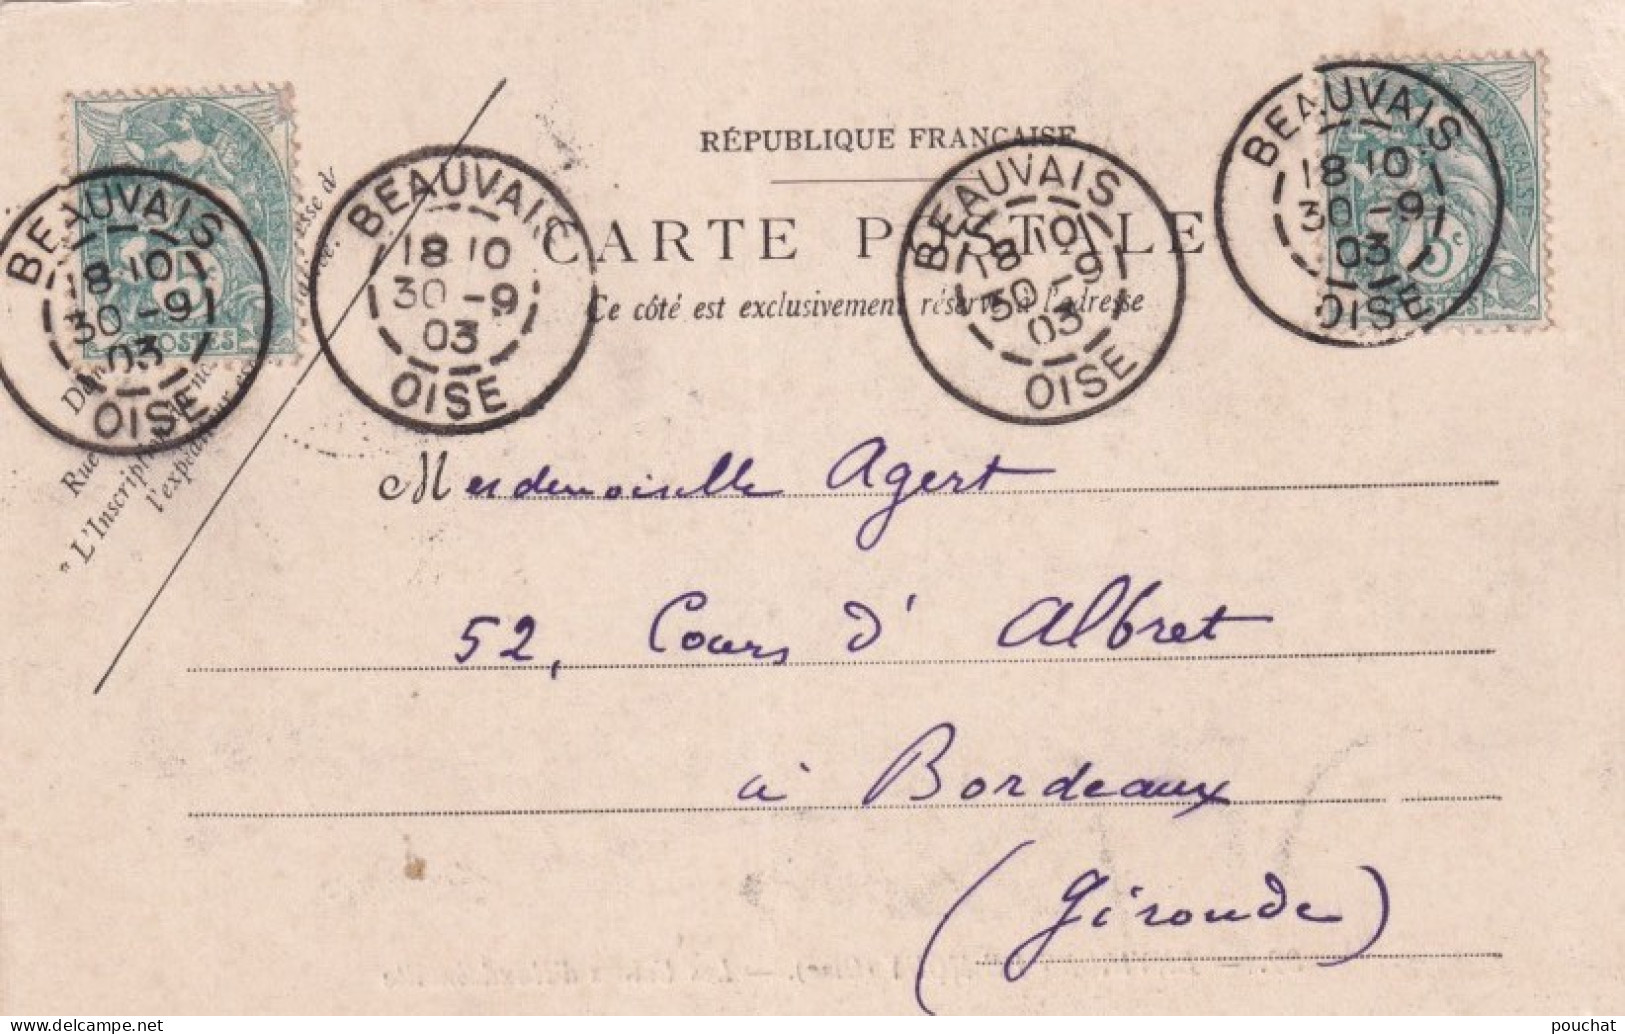 RÉPUBLIQUE FRANÇAISE
CARTE POSTALE
Ce côté est exclusivement réservé à l'adresse
BEAUVAIS
18 10
30 -9
03
OISE
BEAUVAIS
18 10
30 -9
03
OISE
BEAUVAIS
18 10
30 -9
03
OISE
BEAUVAIS
18 10
30 -9
03
OISE
5c
POSTES
Rue
"L'Inscription
l'expéditeur est
Mesdemoiselle Agert
52, Cours d'Albret
à Bordeaux
(Gironde)
pouchat